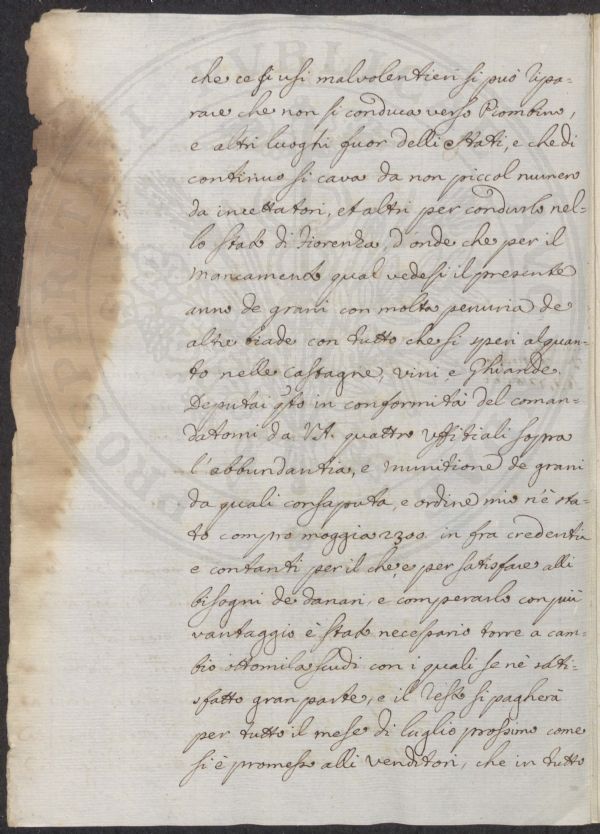 che ce si usi malvolentieri si può ripa-
rare che non si conduca verso Piombino,
e altri luoghi fuor delli Stati, e che di
continuo si cava da non piccol numero
da incettatori, et altri per condurlo nel-
lo stato di Fiorenza, d'onde che per il
mancamento qual vedesi il presente
anno de grani con molta penuria de
altre biade con tutto che si speri alquan-
to nelle castagne, vini, e Ghiande.
Deputai qsto in conformità del coman-
datomi da V.A. quattro uffitiali sopra
l'abbundantia, e munitione de grani
da quali consaputa, e ordine mio n'è sta-
to compro moggia 2300 in fra credentia
e contanti per il che, e per satisfare alli
bisogni de danari, e comperarlo con più
vantaggio è stato necessario torre a cam-
bio ottomila scudi con i quali se n'è sati-
sfatto gran parte, e il resto si pagherà
per tutto il mese di luglio prossimo come
si è promesso alli venditori, che in tutto
PROSPERITATI PVBLIC